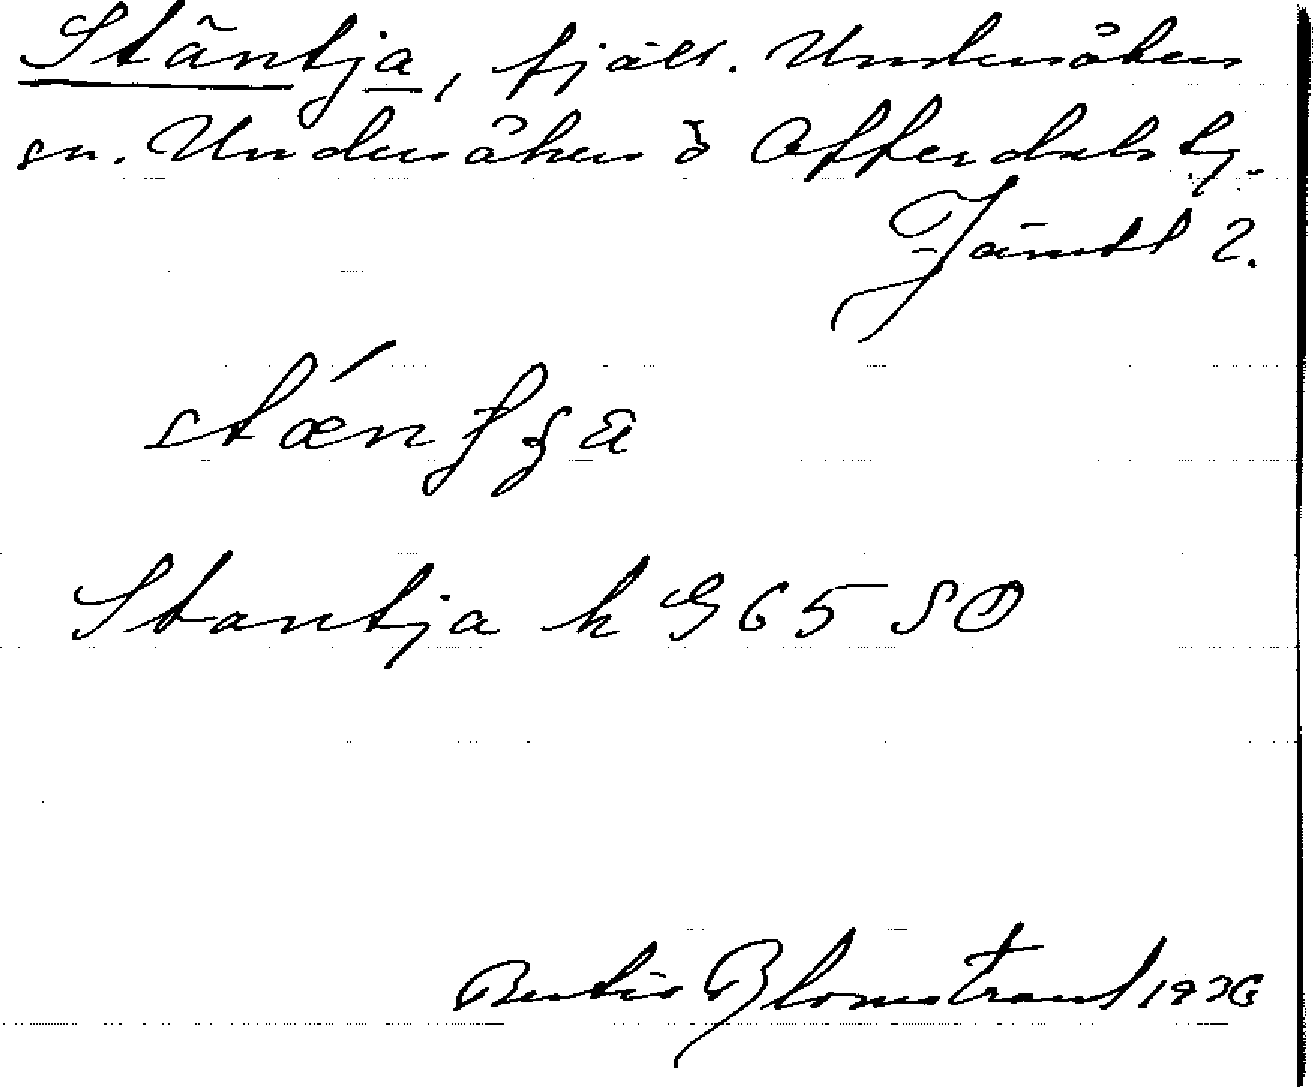 Stäntja, fjäll. Undersåkers
sn. Undersåkers o Offerdals tg.
Jämtl 2.
stǽnʃʒa
Stantja h 965 SO
Bertil Blomstrand 1926